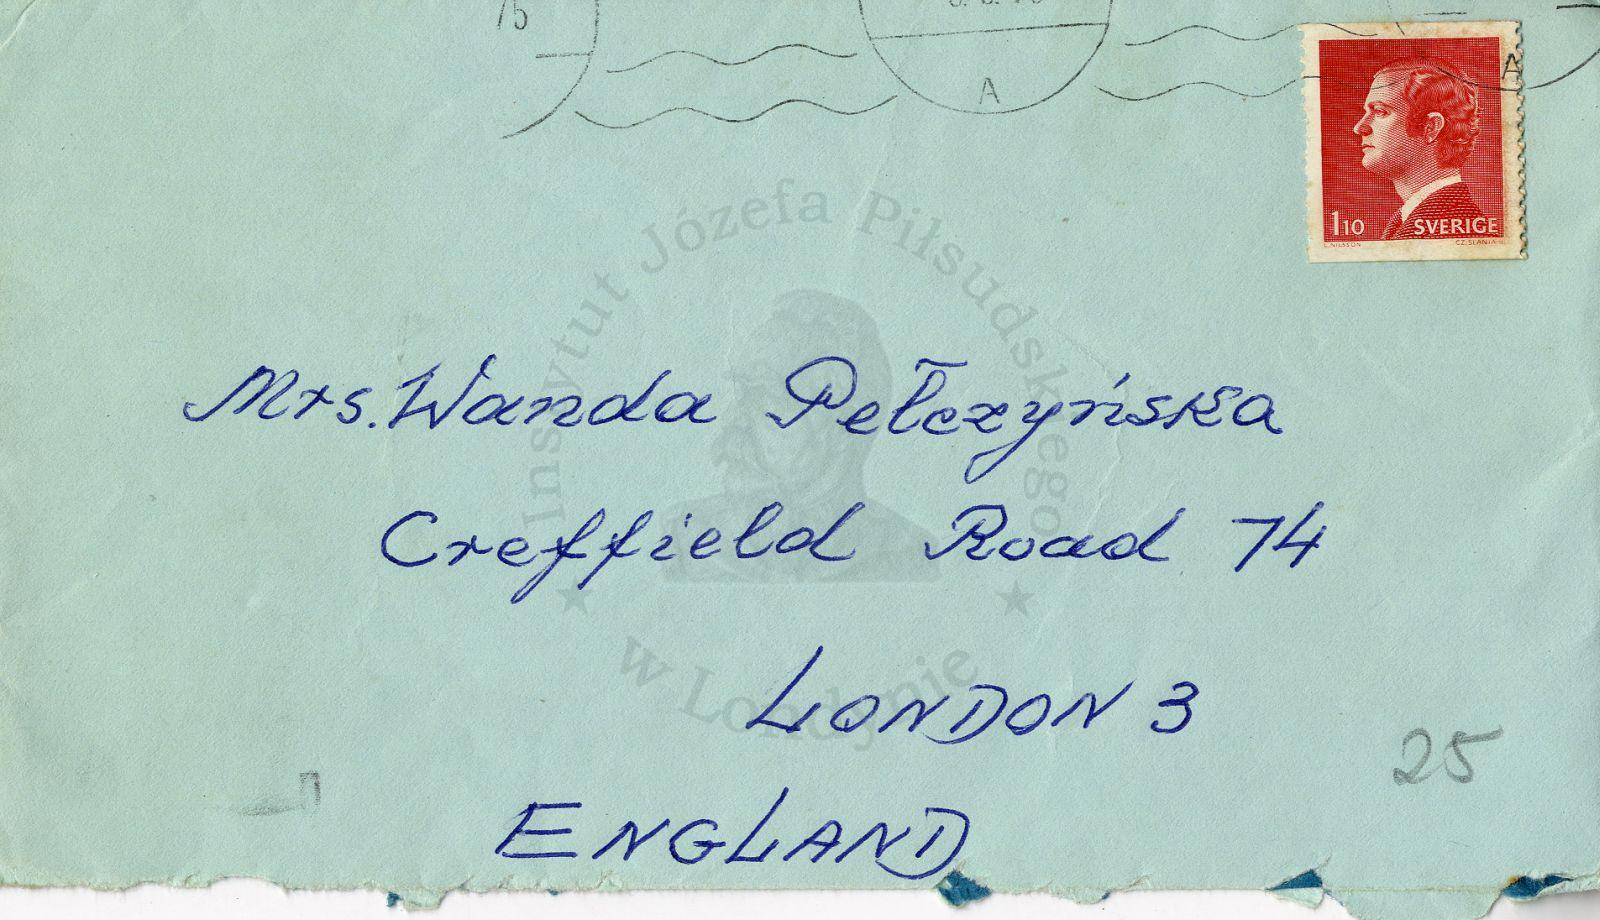 75
A
A
1 10 SVERIGE
L. NILSSON CZ. SLANIA
Instytut Józefa Piłsudskiego
w Londynie
Mrs. Wanda Pełczyńska
Creffield Road 74
LONDON 3
25
ENGLAND